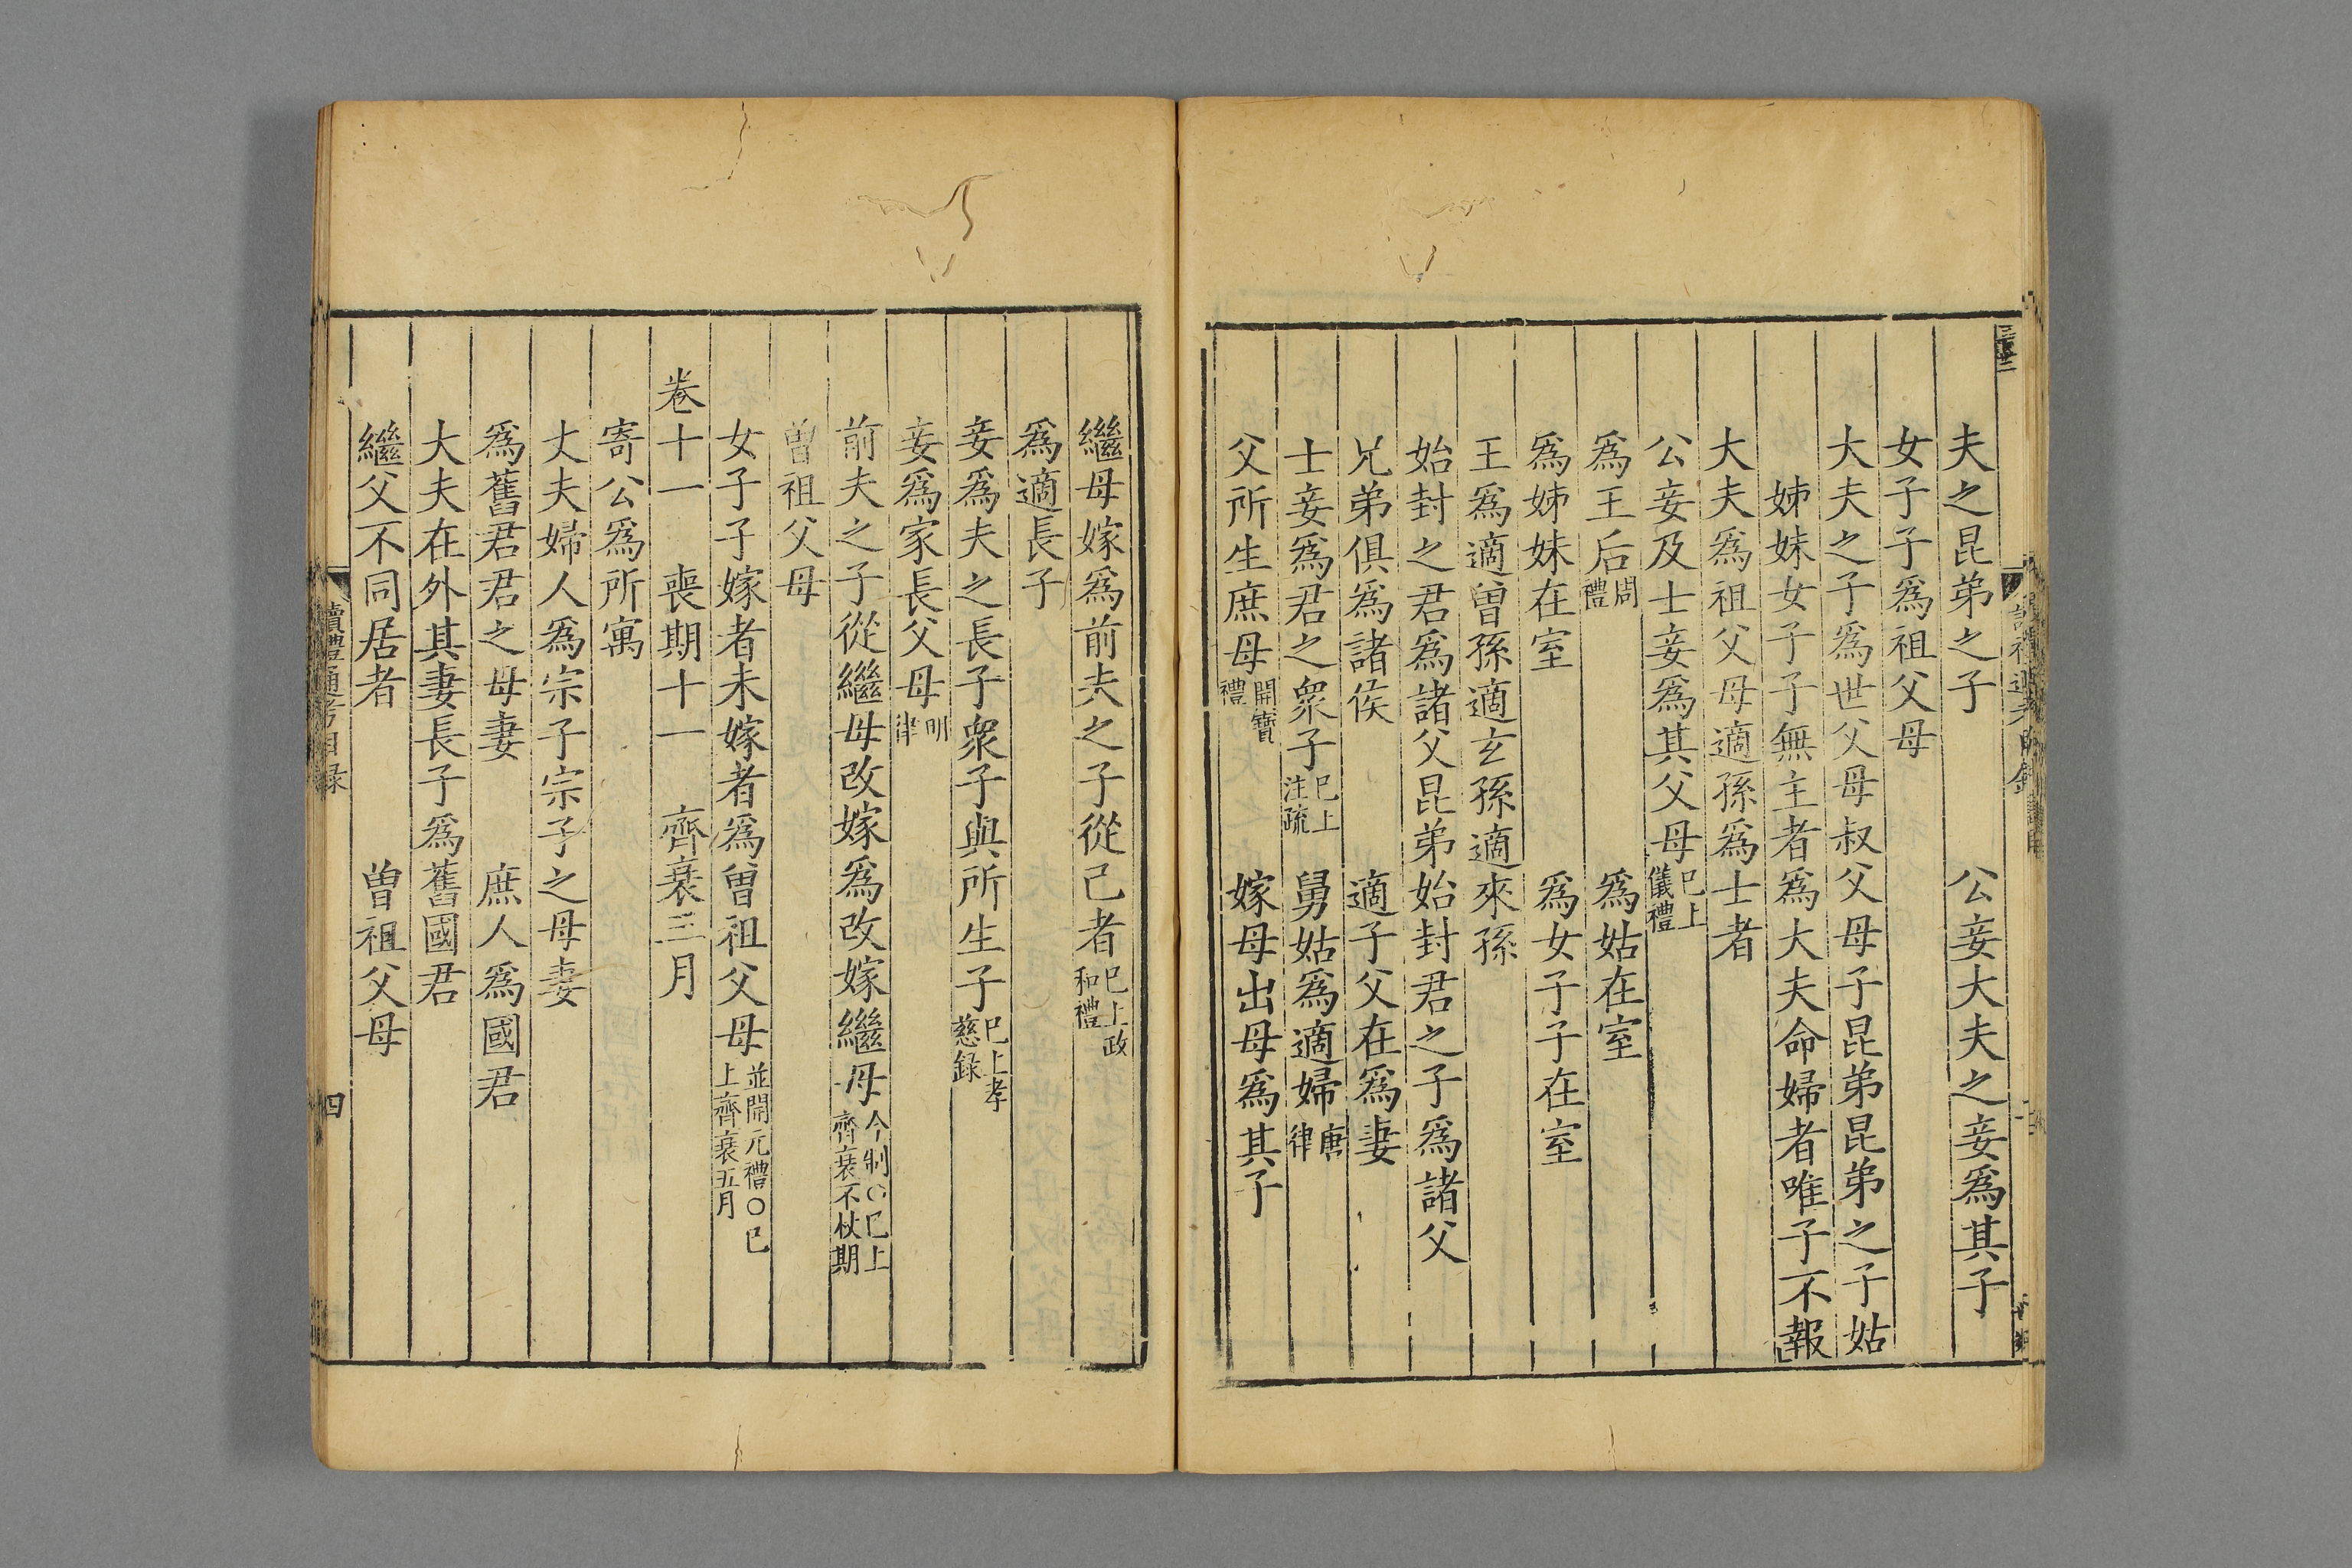 夫之昆弟之子　公妾大夫之妾爲其子
女子子爲祖父母
大夫之子爲世父母叔父母子昆弟昆弟之子姑
姊妹女子子無主者爲大夫命婦者唯子不報
大夫爲祖父母適孫爲士者
公妾及士妾爲其父母巳上儀禮
爲王后周禮　爲姑在室
爲姊妹在室　爲女子子在室
王爲適曾孫適玄孫適來孫
始封之君爲諸父昆弟始封君之子爲諸父
兄弟俱爲諸侯　適子父在爲妻
士妾爲君之衆子巳上注疏　舅姑爲適婦唐律
父所生庶母開寶禮　嫁母出母爲其子
繼母嫁爲前夫之子從己者巳上政和禮
爲適長子
妾爲夫之長子衆子與所生子巳上孝慈録
妾爲家長父母明律
前夫之子從繼母改嫁爲改嫁繼母今制○巳上齊衰不杖期
曾祖父母
女子子嫁者未嫁者爲曾祖父母並開元禮○巳上齊衰五月
卷十一　喪期十一　齊衰三月
寄公爲所寓
丈夫婦人爲宗子宗子之母妻
爲舊君君之母妻　庶人爲國君
大夫在外其妻長子爲舊國君
繼父不同居者　曾祖父母
讀禮通考目録　四